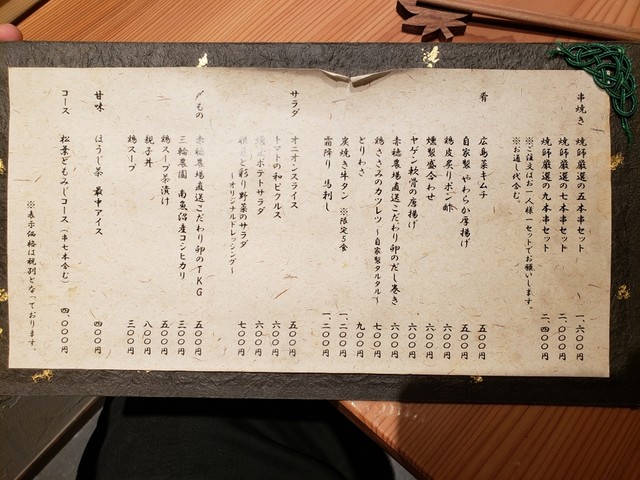 串焼き
焼師厳選の五本串セット 一、六〇〇円
焼師厳選の七本串セット 二、〇〇〇円
焼師厳選の九本串セット 二、四〇〇円
※ご注文はお一人様一セットでお願いします。
※お通し代含む。
肴
広島菜キムチ 五〇〇円
自家製 やわらか厚揚げ 五〇〇円
鶏皮炙りポン酢 六〇〇円
燻製盛合わせ 六〇〇円
ヤゲン軟骨の唐揚げ 六〇〇円
赤穂農場直送こだわり卵のだし巻き 六〇〇円
鶏ささみのカツレツ 〜自家製タルタル〜 七〇〇円
とりわさ 九〇〇円
炭焼き牛タン ※限定5食 一、二〇〇円
霜降り 馬刺し 一、二〇〇円
サラダ
オニオンスライス 五〇〇円
トマトの和ピクルス 六〇〇円
ポテトサラダ 六〇〇円
彩り野菜のサラダ 七〇〇円
〜オリジナルドレッシング〜
〆もの
赤穂農場直送こだわり卵のTKG 五〇〇円
三輪農園 南魚沼産コシヒカリ 三〇〇円
鶏スープ茶漬け 五〇〇円
親子丼 八〇〇円
鶏スープ 三〇〇円
甘味
ほうじ茶 最中アイス 四〇〇円
コース
松葉どもみじコース(串七本含む) 四、〇〇〇円
※表示価格は税別となっております。